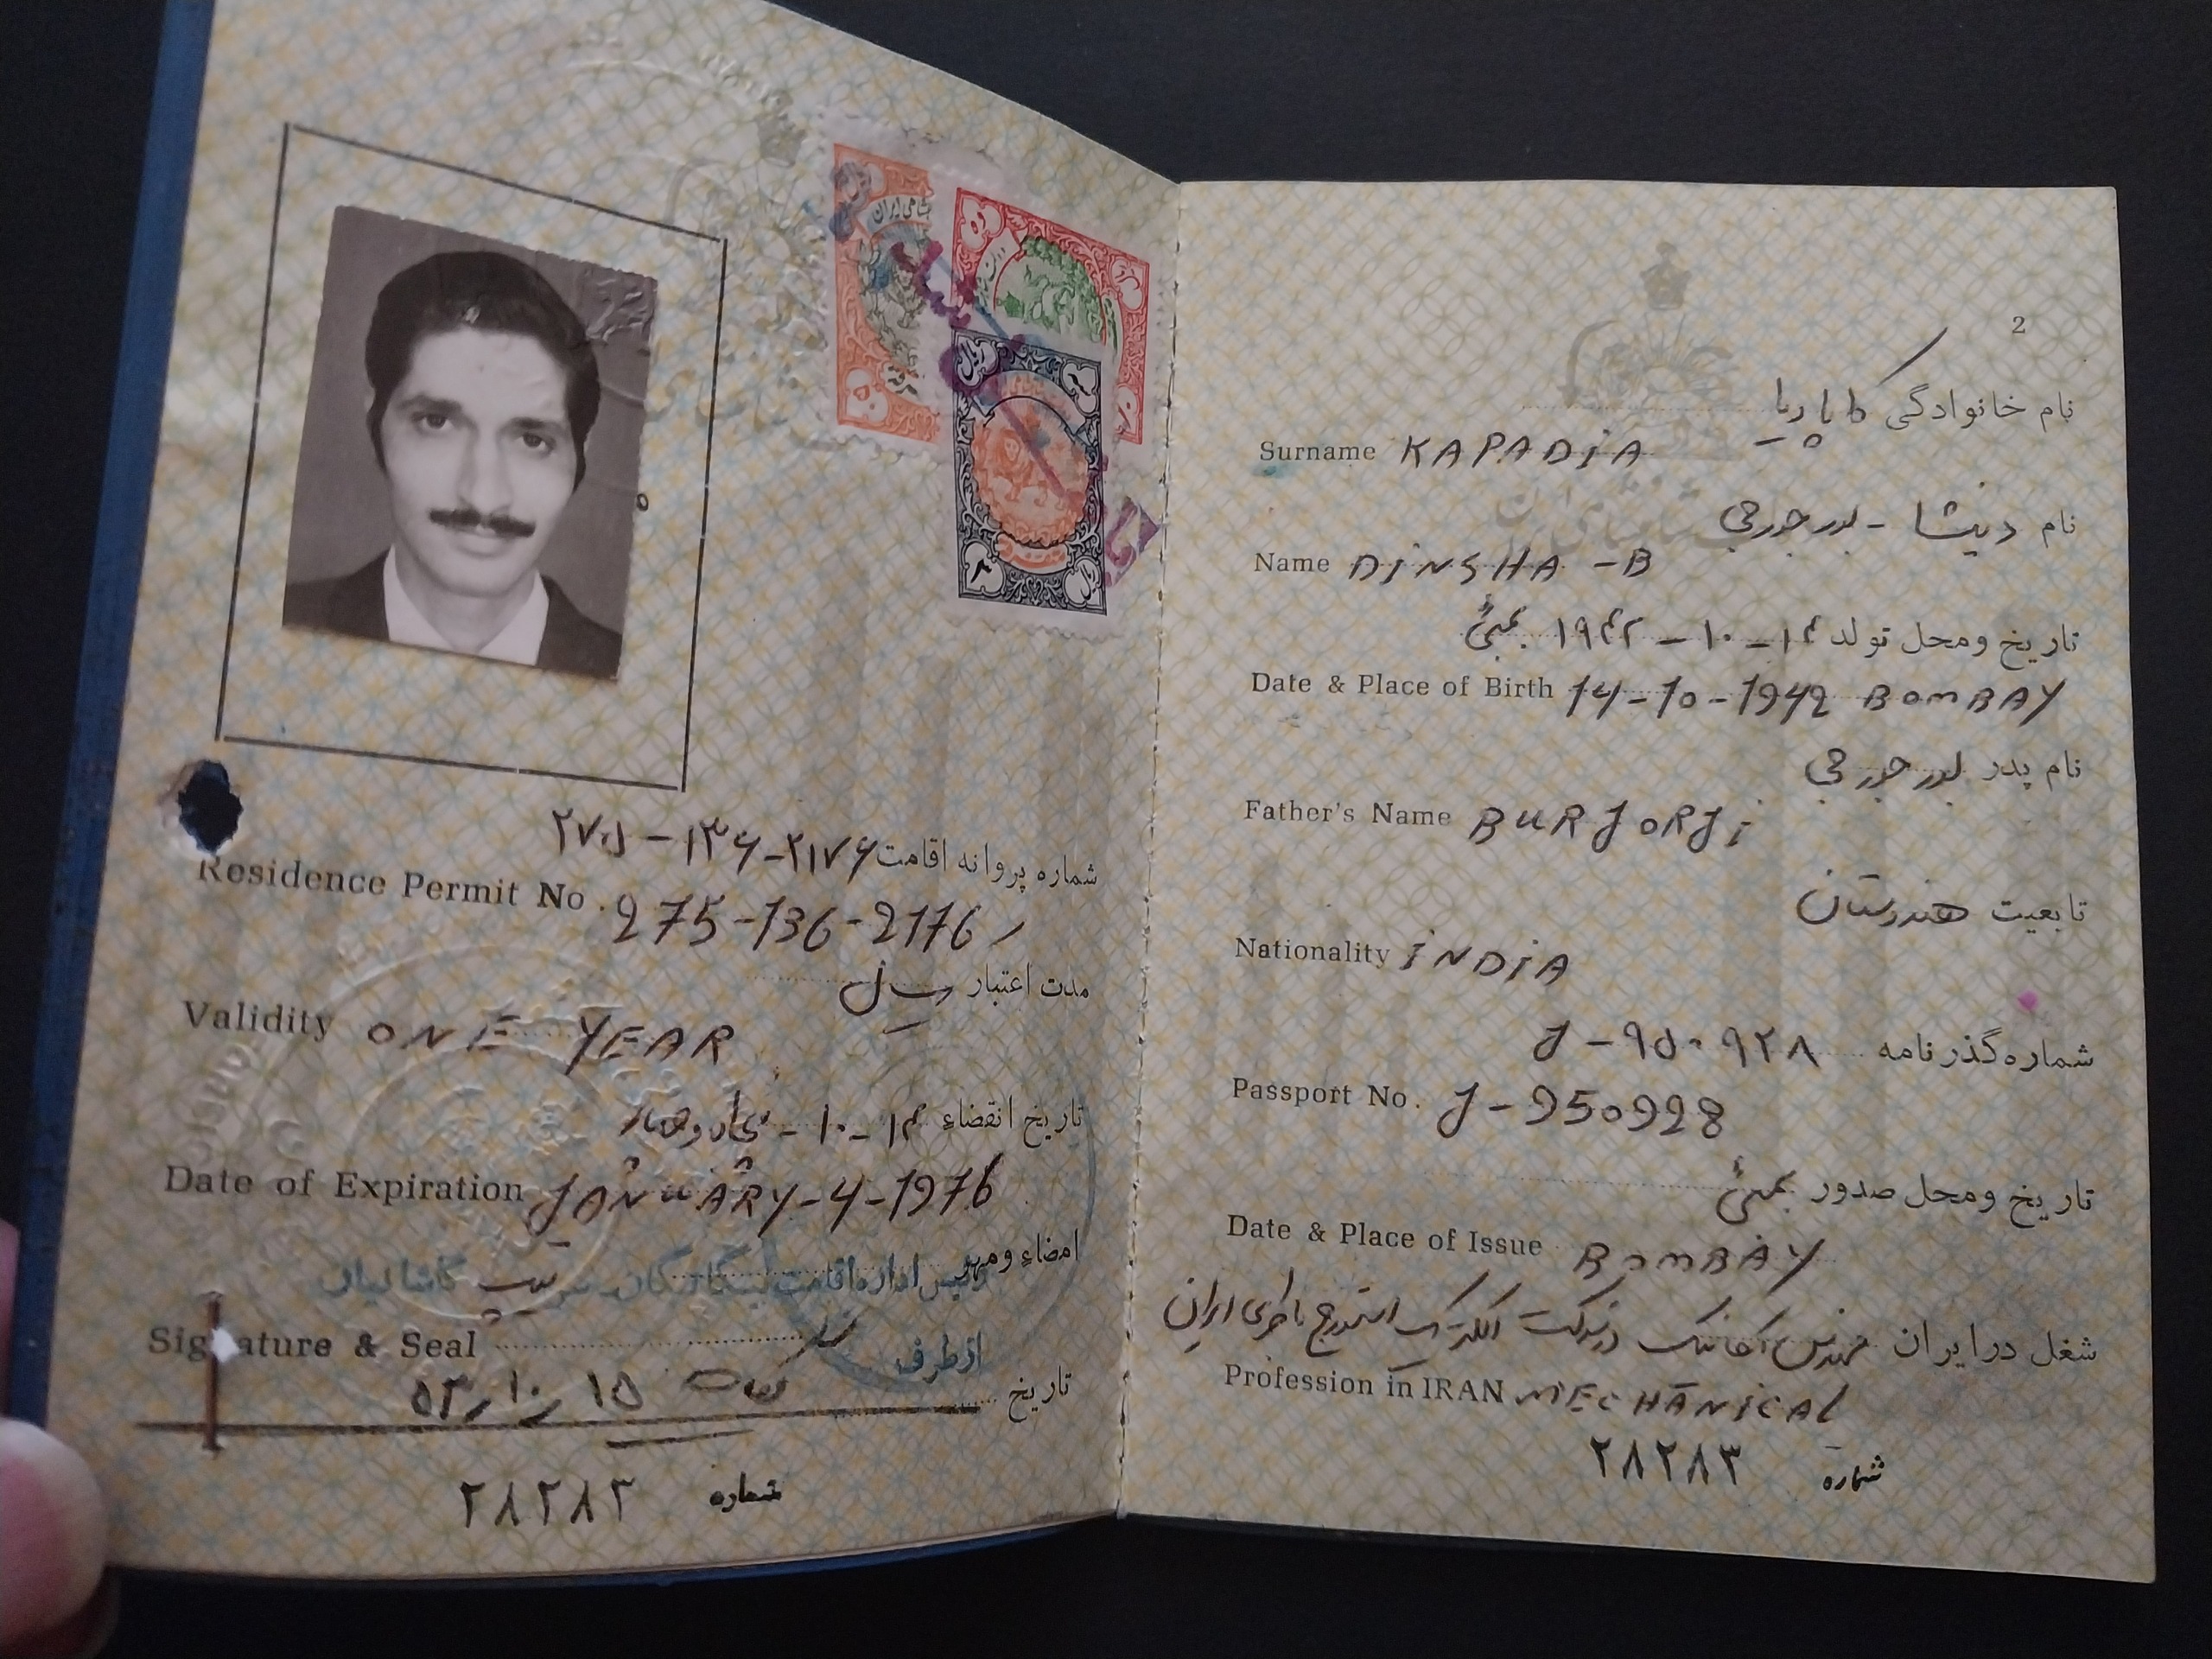 شماره پروانه اقامت ۲۷۵ – ۱۳۶ – ۲۱۷۶
Residence Permit No. 275-136-2176
مدت اعتبار
Validity ONE YEAR
تاریخ انقضاء ۱۴ – ۱۰ –
Date of Expiration JANUARY-4-1976
امضاء ومهر
رئیس اداره اقامت بیگانگان
Signature & Seal
از طرف
تاریخ ۱۵ ر ۱۰ ر ۵۳
شماره ۲۸۲۸۳
2
نام خانوادگی کاپادیا
Surname KAPADiA
نام دینشا - بورجورجی
Name DiNSHA -B
تاریخ ومحل تولد ۱۴ – ۱۰ – ۱۹۴۲ بمبئی
Date & Place of Birth 14-10-1942 BOMBAY
نام پدر بورجورجی
Father's Name BURJORJi
تابعیت هندوستان
Nationality iNDiA
شماره گذرنامه J – ۹۵۰۹۲۸
Passport No. J-950928
تاریخ ومحل صدور بمبئی
Date & Place of Issue BOMBAY
شغل در ایران مهندس مکانیک در شرکت الکتریک استورج باطری ایران
Profession in IRAN MECHANiCAL
شماره ۲۸۲۸۳